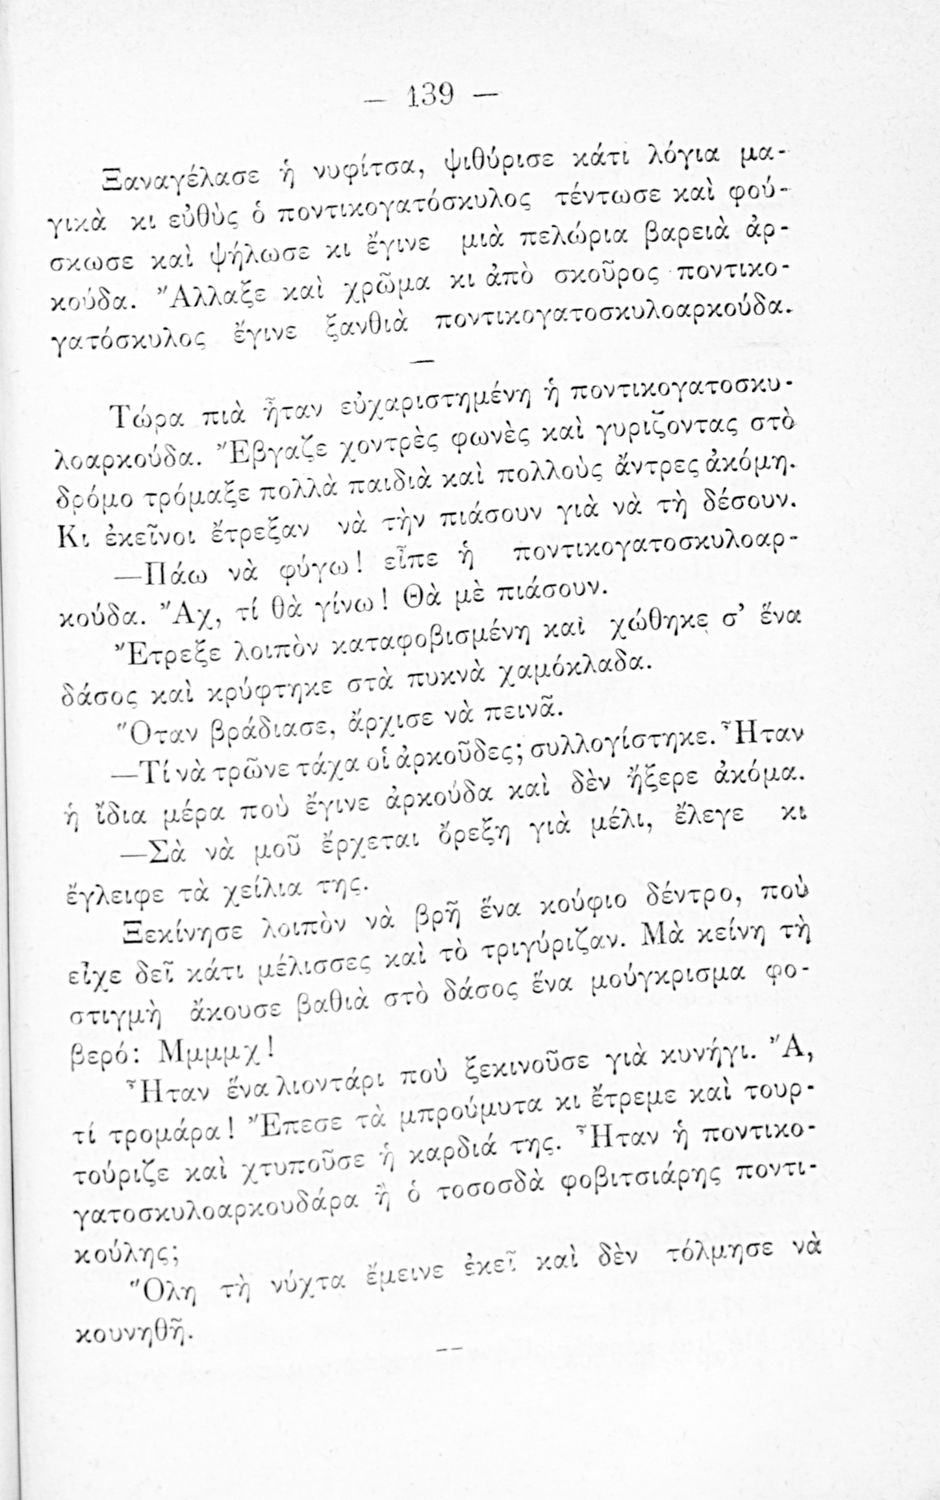 — 139 —
Ξαναγέλασε ἡ νυφίτσα, ψιθύρισε κάτι λόγια μα-
γικὰ κι εὐθὺς ὁ ποντικογατόσκυλος τέντωσε καὶ φού-
σκωσε καὶ ψήλωσε κι ἔγινε μιὰ πελώρια βαρειὰ ἀρ-
κούδα. Ἄλλαξε καὶ χρῶμα κι ἀπὸ σκοῦρος ποντικο-
γατόσκυλος ἔγινε ξανθιὰ ποντικογατοσκυλοαρκούδα.
—
Τώρα πιὰ ἦταν εὐχαριστημένη ἡ ποντικογατοσκυ-
λοαρκούδα. Ἔβγαζε χοντρὲς φωνὲς καὶ γυρίζοντας στὸ
δρόμο τρόμαξε πολλὰ παιδιὰ καὶ πολλοὺς ἄντρες ἀκόμη.
Κι ἐκεῖνοι ἔτρεξαν νὰ τὴν πιάσουν γιὰ νὰ τὴ δέσουν.
—Πάω νὰ φύγω! εἶπε ἡ ποντικογατοσκυλοαρ-
κούδα. Ἄχ, τί θὰ γίνω! Θὰ μὲ πιάσουν.
Ἔτρεξε λοιπὸν καταφοβισμένη καὶ χώθηκε σ’ ἕνα
δάσος καὶ κρύφτηκε στὰ πυκνὰ χαμόκλαδα.
Ὅταν βράδιασε, ἄρχισε νὰ πεινᾶ.
—Τί νὰ τρῶνε τάχα οἱ ἀρκοῦδες; συλλογίστηκε. Ἦταν
ἡ ἴδια μέρα ποὺ ἔγινε ἀρκούδα καὶ δὲν ἤξερε ἀκόμα.
—Σὰ νὰ μοῦ ἔρχεται ὄρεξη γιὰ μέλι, ἔλεγε κι
ἔγλειφε τὰ χείλια της.
Ξεκίνησε λοιπὸν νὰ βρῆ ἕνα κούφιο δέντρο, ποὺ
εἶχε δεῖ κάτι μέλισσες καὶ τὸ τριγύριζαν. Μὰ κείνη τὴ
στιγμὴ ἄκουσε βαθιὰ στὸ δάσος ἕνα μούγκρισμα φο-
βερό: Μμμμχ!
Ἦταν ἕνα λιοντάρι ποὺ ξεκινοῦσε γιὰ κυνήγι. Ἄ,
τί τρομάρα! Ἔπεσε τὰ μπρούμυτα κι ἔτρεμε καὶ τουρ-
τούριζε καὶ χτυποῦσε ἡ καρδιά της. Ἦταν ἡ ποντικο-
γατοσκυλοαρκουδάρα ἢ ὁ τοσοσδὰ φοβιτσιάρης ποντι-
κούλης;
Ὅλη τὴ νύχτα ἔμεινε ἐκεῖ καὶ δὲν τόλμησε νὰ
κουνηθῆ.